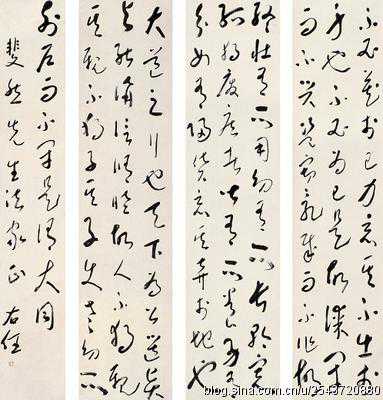 大道之行也天下為公選賢
與能講信修睦故人不獨親
其親不獨子其子使老有所
終壯有所用幼有所長矜寡
孤獨廢疾者皆有所養男有
分女有歸貨惡其棄於地也
不必藏於己力惡其不出於
身也不必為己是故謀閉
而不興盜竊亂賊而不作故
外戶而不閉是謂大同
斐然先生法家正 右任
blog.sina.com.cn/u/2543720880